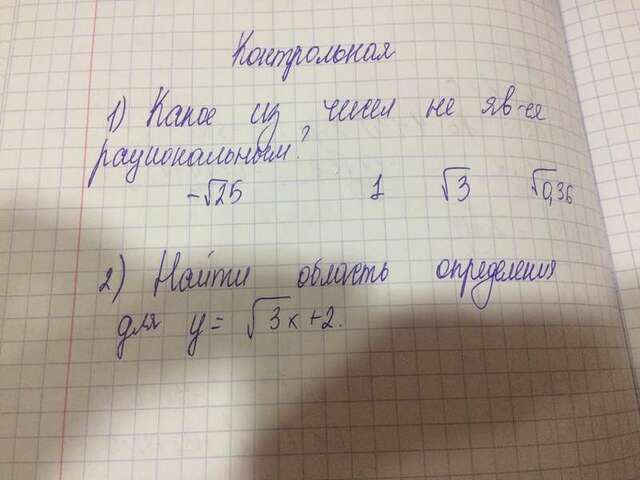 Контрольная
1) Какое из чисел не яв-ся
рациональным?
-√25 1 √3 √0,36
2) Найти область определения
для y = √3x+2.